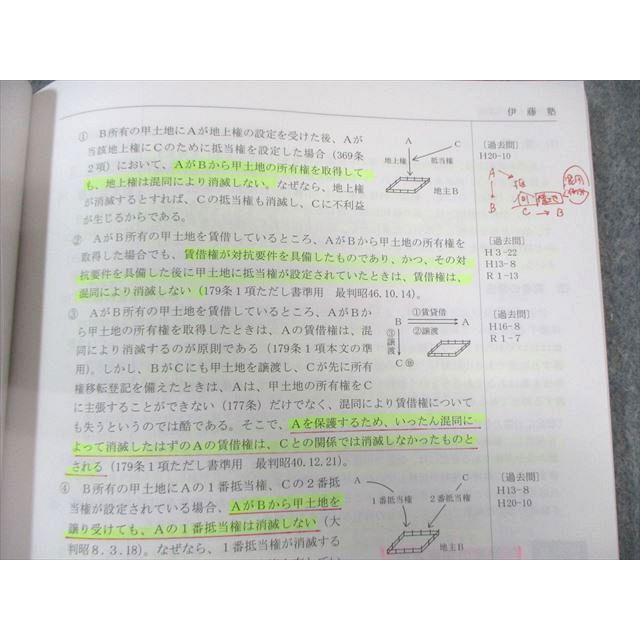 伊藤塾
① B所有の甲土地にAが地上権の設定を受けた後、Aが
当該地上権にCのために抵当権を設定した場合（369条
2項）において、AがBから甲土地の所有権を取得して
も、地上権は混同により消滅しない。なぜなら、地上権
が消滅するとすれば、Cの抵当権も消滅し、Cに不利益
が生じるからである。
A
C
地上権
抵当権
地主B
［過去問］
H20-10
A
B
C → B
② AがB所有の甲土地を賃借しているところ、AがBから甲土地の所有権を
取得した場合でも、賃借権が対抗要件を具備したものであり、かつ、その対
抗要件を具備した後に甲土地に抵当権が設定されていたときは、賃借権は、
混同により消滅しない（179条1項ただし書準用 最判昭46.10.14）。
［過去問］
H3-22
H13-8
R1-13
③ AがB所有の甲土地を賃借しているところ、AがBか
ら甲土地の所有権を取得したときは、Aの賃借権は、混
同により消滅するのが原則である（179条1項本文の準
用）。しかし、BがCにも甲土地を譲渡し、Cが先に所有
権移転登記を備えたときは、Aは、甲土地の所有権をC
に主張することができない（177条）だけでなく、混同により賃借権について
も失うというのでは酷である。そこで、Aを保護するため、いったん混同に
よって消滅したはずのAの賃借権は、Cとの関係では消滅しなかったものと
される（179条1項ただし書準用 最判昭40.12.21）。
①賃貸借
B
A
②譲渡
③譲渡
C
［過去問］
H16-8
R1-7
④ B所有の甲土地にAの1番抵当権、Cの2番抵
当権が設定されている場合、AがBから甲土地を
譲り受けても、Aの1番抵当権は消滅しない（大
判昭8.3.18）。なぜなら、1番抵当権が消滅する
A
C
1番抵当権
2番抵当権
地主B
［過去問］
H13-8
H20-10